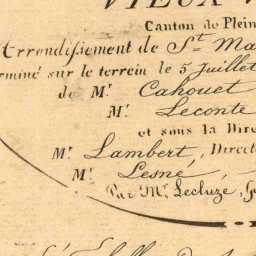 VIEUX
Canton de Plein
Arrondissement de St. Ma
erminé sur le terrein le 5 juillet
de Mr. Cahouet
Mr. Leconte
et sous la Dire
Mr. Lambert, Direct
Mr. Lesné,
Par Mr. Lecluze, Gé